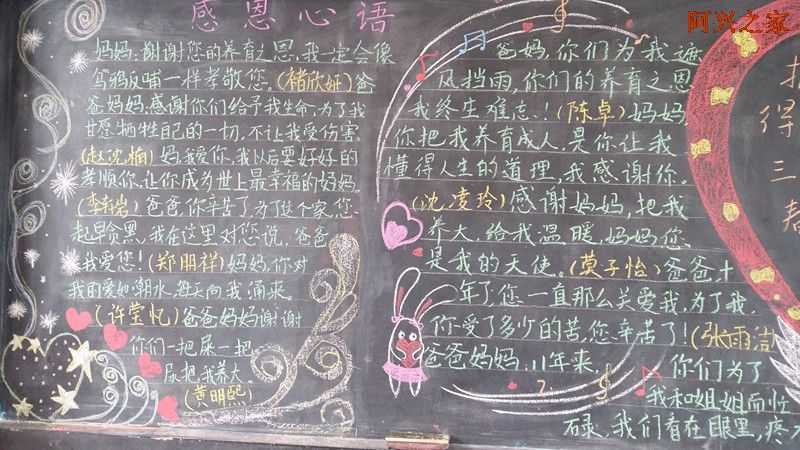 感恩心语
妈妈：谢谢您的养育之恩，我一定会像
鸟鸦反哺一样孝敬您。(褚欣妍)爸
爸妈妈，感谢你们给予我生命，为了我
甘愿牺牲自己的一切，不让我受伤害。
(赵沈楠)妈，我爱你，我以后要好好的
孝顺你，让你成为世上最幸福的妈妈。
爸爸，你辛苦了，为了这个家，您
起早贪黑，我在这里对您说，爸爸
我爱您！(郑朋祥)妈妈，你对
我的爱如潮水，每天向我涌来。
(许莹忆)爸爸妈妈谢谢
你们一把屎一把
尿把我养大
(黄明熙)
爸妈，你们为我遮
风挡雨，你们的养育之恩
我终生难忘！(陈卓)妈妈，
你把我养育成人，是你让我
懂得人生的道理，我感谢你。
(沈凌玲)感谢妈妈，把我
养大，给我温暖，妈妈您
是我的天使。(莫子怡)爸爸，十
年了，您一直那么关爱我，为了我，
你受了多少的苦，您辛苦了！(张雨洁
爸爸妈妈，11年来，你们为了
我和姐姐而忙
碌，我们看在眼里，疼
得
三
春
阿兴之家